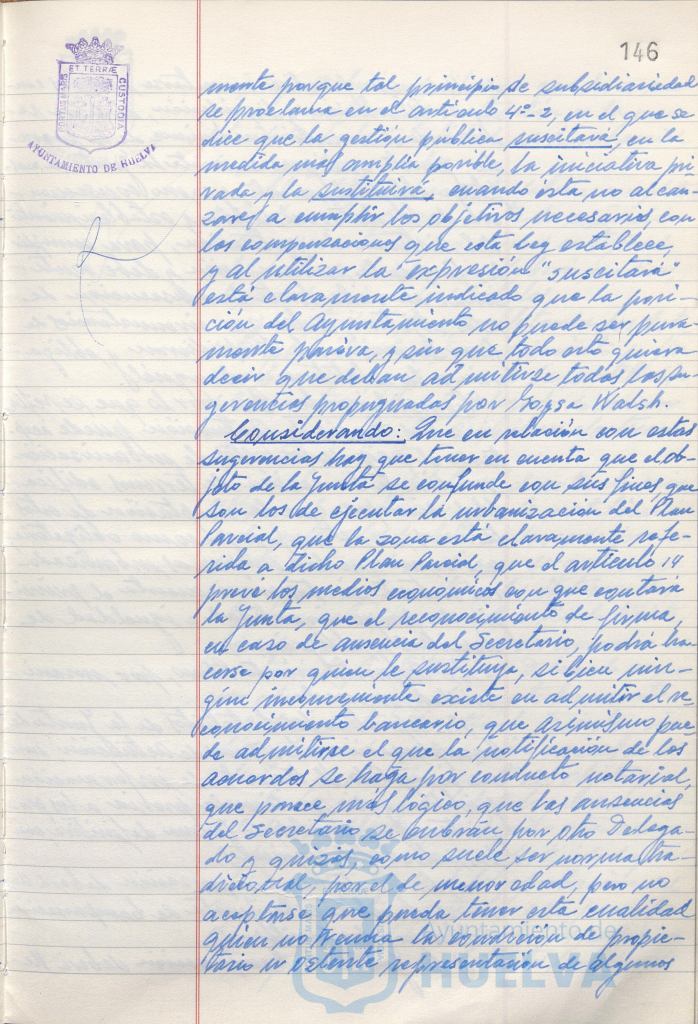 146
PORTUS MARIS
ET TERRÆ
CUSTODIA
AYUNTAMIENTO DE HUELVA
mente porque tal principio de subsidiariedad
se proclama en el artículo 4º-2, en el que se
dice que la gestión pública suscitará, en la
medida más amplia posible, la iniciativa pri
vada y la sustituirá, cuando ésta no alcan
zare a cumplir los objetivos necesarios, con
las compensaciones que esta Ley establece,
y al utilizar la expresión "suscitará"
está claramente indicado que la posi-
ción del Ayuntamiento no puede ser pura
mente pasiva, y sin que todo esto quiera
decir que deban admitirse todas las su-
gerencias propugnadas por Walsh.
Considerando: Que en relación con estas
sugerencias hay que tener en cuenta que el ob-
jeto de la Junta se confunde con sus fines que
son los de ejecutar la urbanización del Plan
Parcial, que la zona está claramente refe-
rida a dicho Plan Parcial, que el artículo 14
prevé los medios económicos con que contará
la Junta, que el reconocimiento de firma,
en caso de ausencia del Secretario, podrá ha
cerse por quien le sustituya, si bien nin-
gún inconveniente existe en admitir el re-
conocimiento bancario, que asimismo pue
de admitirse el que la notificación de los
acuerdos se haga por conducto notarial,
que parece más lógico, que las ausencias
del Secretario se cubran por otro Delega-
do y quizás, como suele ser norma tra-
dicional, por el de menor edad, pero no
aceptarse que pueda tener esta cualidad
quien no tenga la condición de propie-
tario u ostente representación de algunos
Ayuntamiento de
HUELVA